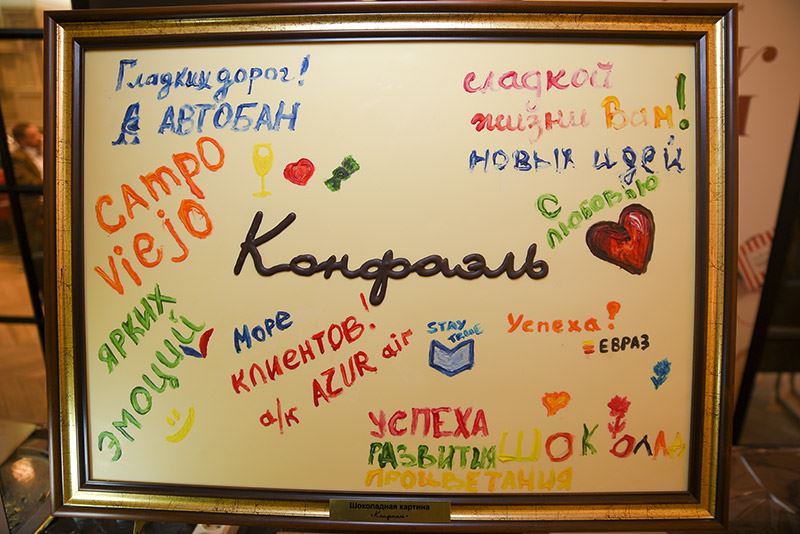 Гладких дорог!
АВТОБАН
сладкой
жизни Вам!
новых идей
CAMPO
Viejo
С
ЛЮБОВЬЮ
Конфаэль
ЯРКИХ
ЭМОЦИЙ
Море
КЛИЕНТОВ!
а/к AZUR air
STAY
TRUE
Успеха!
= ЕВРАЗ
УСПЕХА
РАЗВИТИЯ
ПРОЦВЕТАНИЯ
ШОКОЛАД
Шоколадная картина
«Конфаэль»